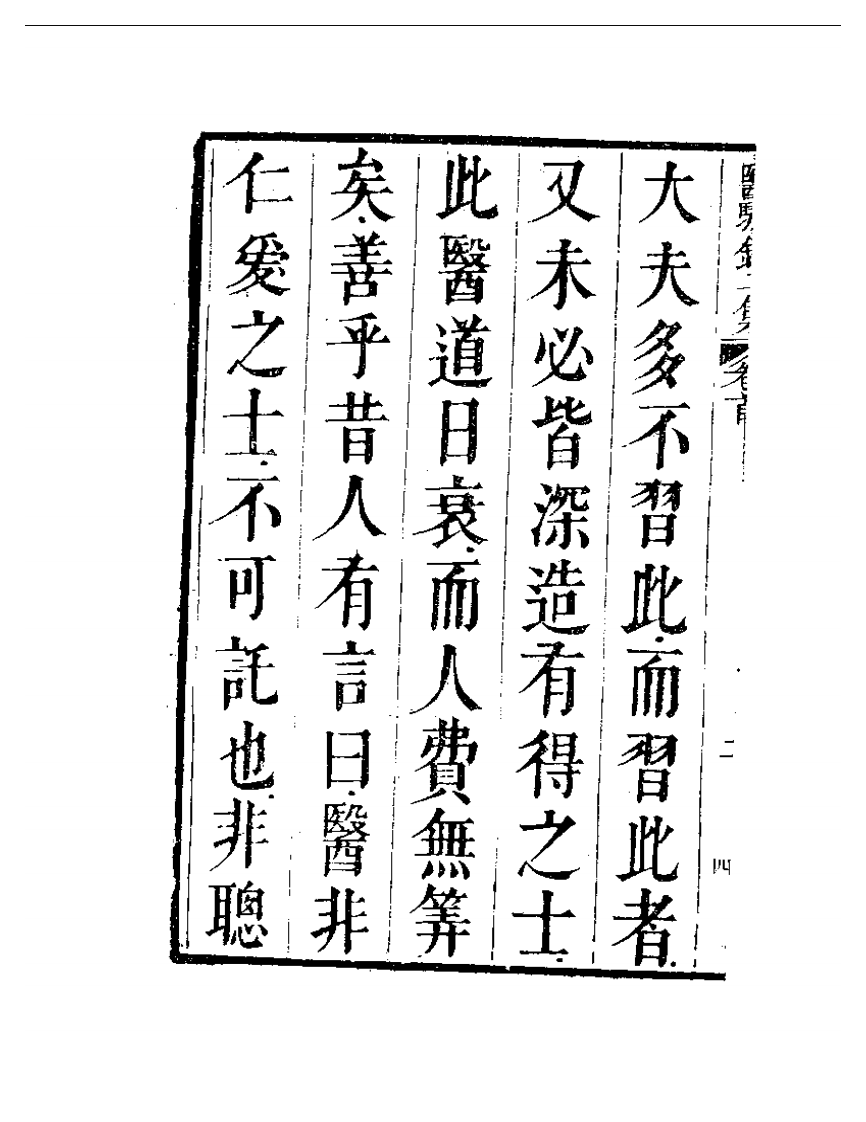 大夫多不習此而習此者
又未必皆深造有得之士
此醫道日衰而人費無筭
矣善乎昔人有言曰醫非
仁爰之士不可託也非聰
醫驗錄二集
卷首
二
四